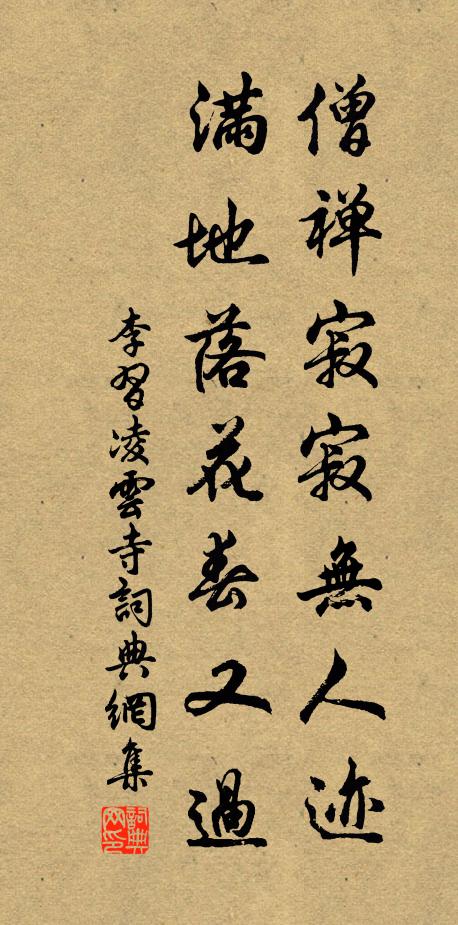 僧禅寂寂無人迹
滿地落花春又過
李習凌雲寺詞典網集
詞典网印